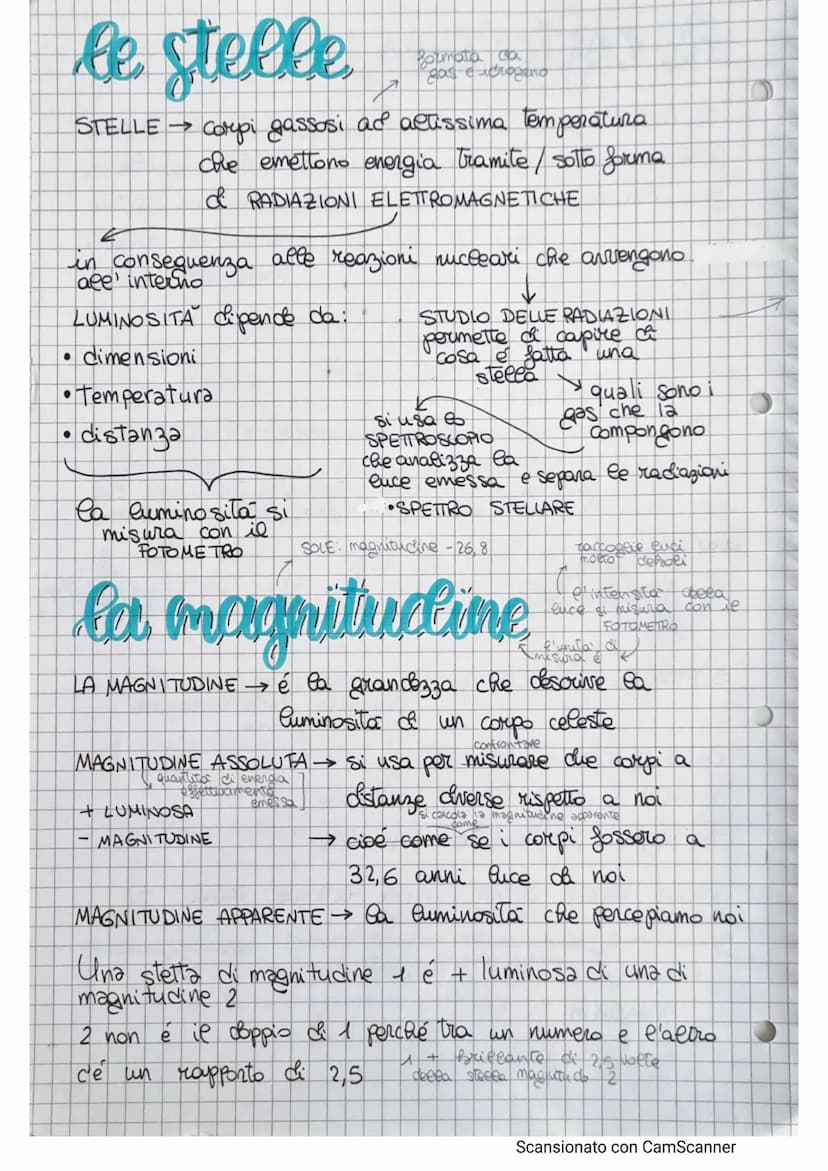 le stelle
formata da
gas e idrogeno
STELLE → corpi gassosi ad altissima temperatura
che emettono energia tramite / sotto forma
di RADIAZIONI ELETTROMAGNETICHE
in conseguenza alle reazioni nucleari che avvengono
all' interno
LUMINOSITÀ dipende da:
• dimensioni
• temperatura
• distanza
la luminosità si
misura con il
FOTOMETRO
STUDIO DELLE RADIAZIONI
permette di capire di
cosa é fatta una
stella
quali sono i
gas che la
compongono
si usa lo
SPETTROSCOPIO
che analizza la
luce emessa e separa le radiazioni
• SPETTRO STELLARE
SOLE: magnitudine -26,8
raccoglie luci
molto deboli
la magnitudine
l'intensità della
luce si misura con il
FOTOMETRO
l'unità di
misura é
LA MAGNITUDINE → é la grandezza che descrive la
luminosità di un corpo celeste
confrontare
MAGNITUDINE ASSOLUTA → si usa per misurare due corpi a
quantità di energia
effettivamente
emessa
distanze diverse rispetto a noi
+ LUMINOSA
- MAGNITUDINE
si calcola la magnitudine apparente
come
→ cioé come se i corpi fossero a
32,6 anni luce da noi
MAGNITUDINE APPARENTE → la luminosità che percepiamo noi
Una stella di magnitudine 1 é + luminosa di una di
magnitudine 2
2 non é il doppio di 1 perché tra un numero e l'altro
c'é un rapporto di 2,5
1 + brillante di 2,5 volte
della stella magnitudo 2
Scansionato con CamScanner